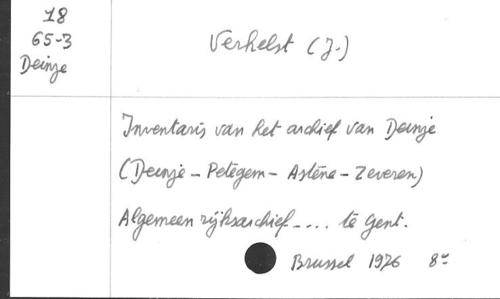 18
65-3
Deinze
Verhelst (J.)
Inventaris van het archief van Deinze
(Deinze - Petegem - Astene - Zeveren)
Algemeen rijksarchief .... te Gent.
Brussel 1976 8°